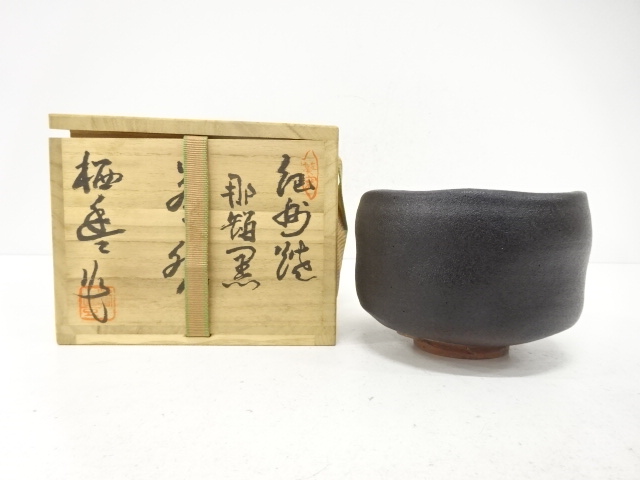 紀州焼
那智黒
茶碗
栖豊作